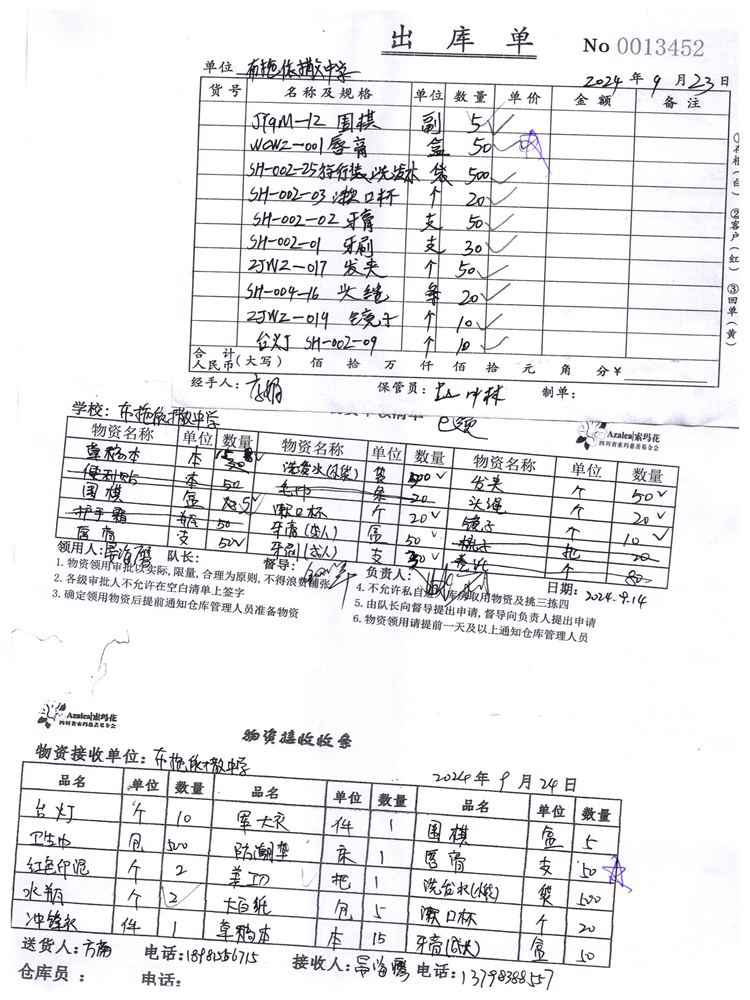 出库单 No 0013452
单位 布拖依撒中学 2024年9月23日
货号 名称及规格 单位 数量 单价 金额 备注
JYQM-12 围棋 副 5✓
WCWZ-001 唇膏 盒 50✓
SH-002-25 旅行装洗发水 袋 500✓
SH-002-03 漱口杯 个 20✓
SH-002-02 牙膏 支 50✓
SH-002-01 牙刷 支 30✓
ZJWZ-017 发夹 个 50✓
SH-004-16 头绳 条 20✓
ZJWZ-019 镜子 个 10✓
台灯 SH-002-09 个 10✓
合计人民币(大写) 佰 拾 万 仟 佰 拾 元 角 分 ¥
经手人: 保管员: 制单:
①存根(白) ②客户(红) ③回单(黄)
学校: 布拖依撒中学
Azalea|索玛花
四川省索玛慈善基金会
物资名称 单位 数量 物资名称 单位 数量 物资名称 单位 数量
草稿本 本 15 洗发水(小袋) 袋 500✓ 发夹 个 50✓
便利贴 本 50 毛巾 条 20 头绳 个 20✓
围棋 盒 5✓ 漱口杯 个 20✓ 镜子 个 10✓
护手霜 瓶 50 牙膏(成人) 盒 50✓ 梳子 把 20
唇膏 支 50✓ 牙刷(成人) 支 个 80
领用人: 队长: 督导: 负责人: 日期: 2024.9.14
1. 物资领用审批以实际,限量,合理为原则,不得浪费铺张
2. 各级审批人不允许在空白清单上签字
3. 确定领用物资后提前通知仓库管理人员准备物资
4. 不允许私自进入库房取用物资及挑三拣四
5. 由队长向督导提出申请,督导向负责人提出申请
6. 物资领用请提前一天及以上通知仓库管理人员
Azalea|索玛花
四川省索玛慈善基金会
物资接收收条
物资接收单位: 布拖依撒中学 2024年9月24日
品名 单位 数量 品名 单位 数量 品名 单位 数量
台灯 个 10 军大衣 件 1 围棋 盒 5
卫生巾 包 500 防潮垫 床 1 唇膏 支 50
红色印泥 个 2 美工刀 把 1 洗发水(小袋) 袋 500
水瓶 个 2 大白纸 包 5 漱口杯 个 20
冲锋衣 件 1 草稿本 本 15 牙膏(成人) 盒 50
送货人: 方 电话: 18981556715 接收人: 电话: 13798388557
仓库员: 电话: